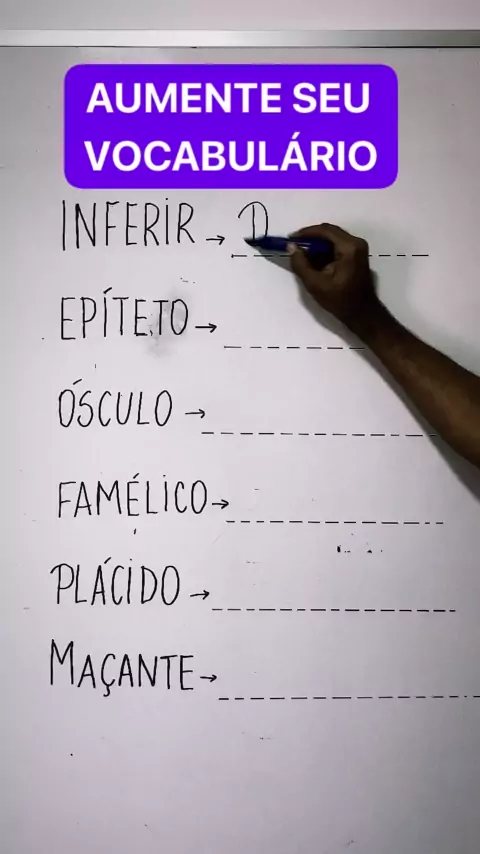 AUMENTE SEU
VOCABULÁRIO
INFERIR → D
EPÍTETO →
ÓSCULO →
FAMÉLICO →
PLÁCIDO →
MAÇANTE →